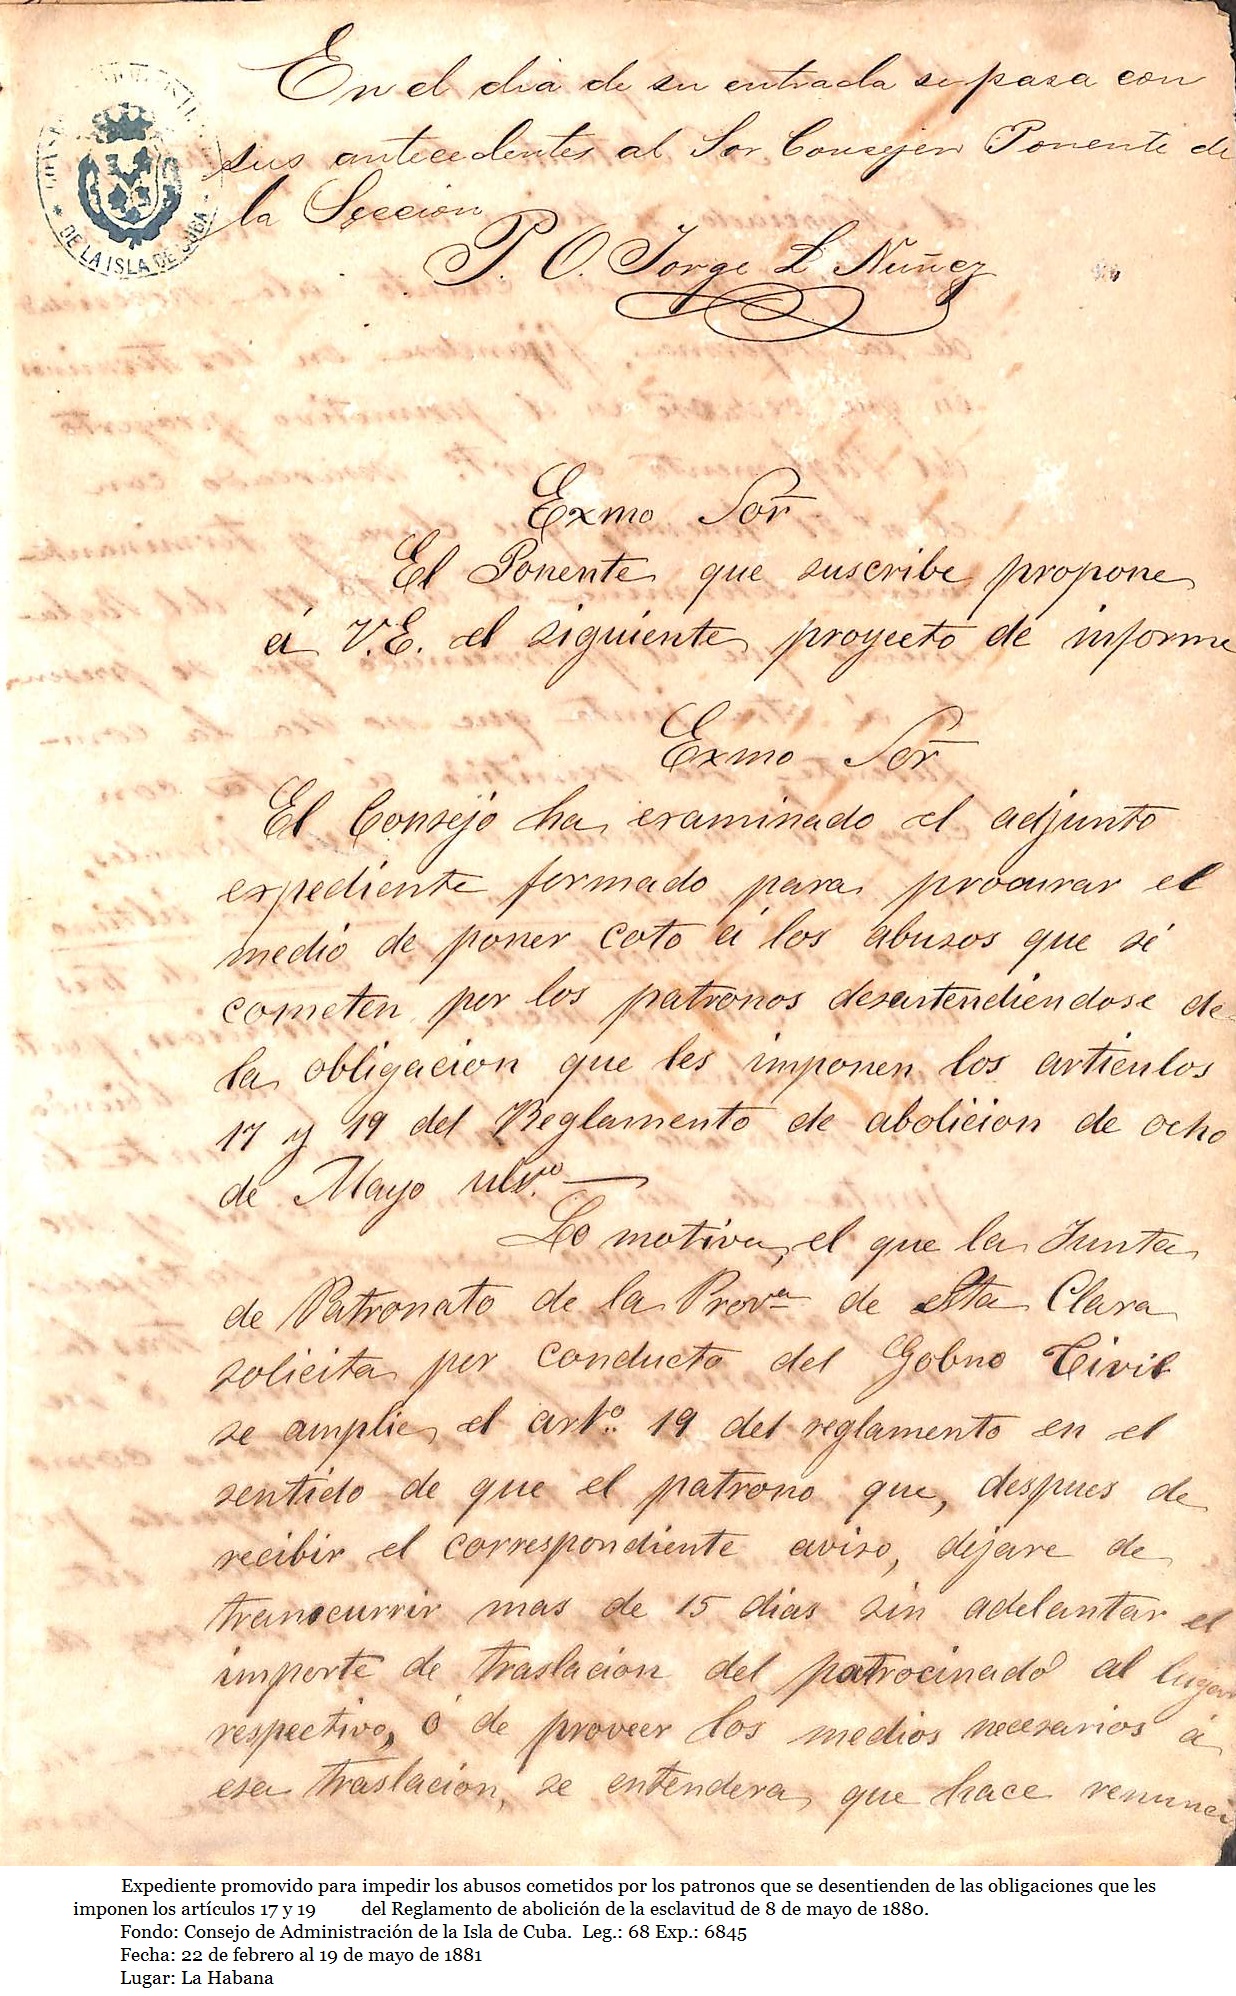 En el dia de su entrada se pasa con
sus antecedentes al Sor Consejero Ponente de
la Seccion
P. O. Jorge L Nuñez
DE LA ISLA DE CUBA
Exmo Sor
El Ponente que suscribe propone
á V.E. el siguiente proyecto de informe
Exmo Sor
El Consejo ha examinado el adjunto
expediente formado para procurar el
medio de poner coto á los abusos que sé
cometen por los patronos desentendiendose de
la obligacion que les imponen los articulos
17 y 19 del Reglamento de abolicion de ocho
de Mayo ult.º
Lo motiva, el que la Junta
de Patronato de la Prov.ª de Sta Clara
solicita por conducto del Gobno Civil
se amplie el art.º 19 del reglamento en el
sentido de que el patrono que, despues de
recibir el correspondiente aviso, dejare de
transcurrir mas de 15 dias sin adelantar el
importe de traslacion del patrocinado al lugar
respectivo, ó de proveer los medios necesarios á
esa traslacion, se entendera que hace renuncia
Expediente promovido para impedir los abusos cometidos por los patronos que se desentienden de las obligaciones que les
imponen los artículos 17 y 19 del Reglamento de abolición de la esclavitud de 8 de mayo de 1880.
Fondo: Consejo de Administración de la Isla de Cuba. Leg.: 68 Exp.: 6845
Fecha: 22 de febrero al 19 de mayo de 1881
Lugar: La Habana